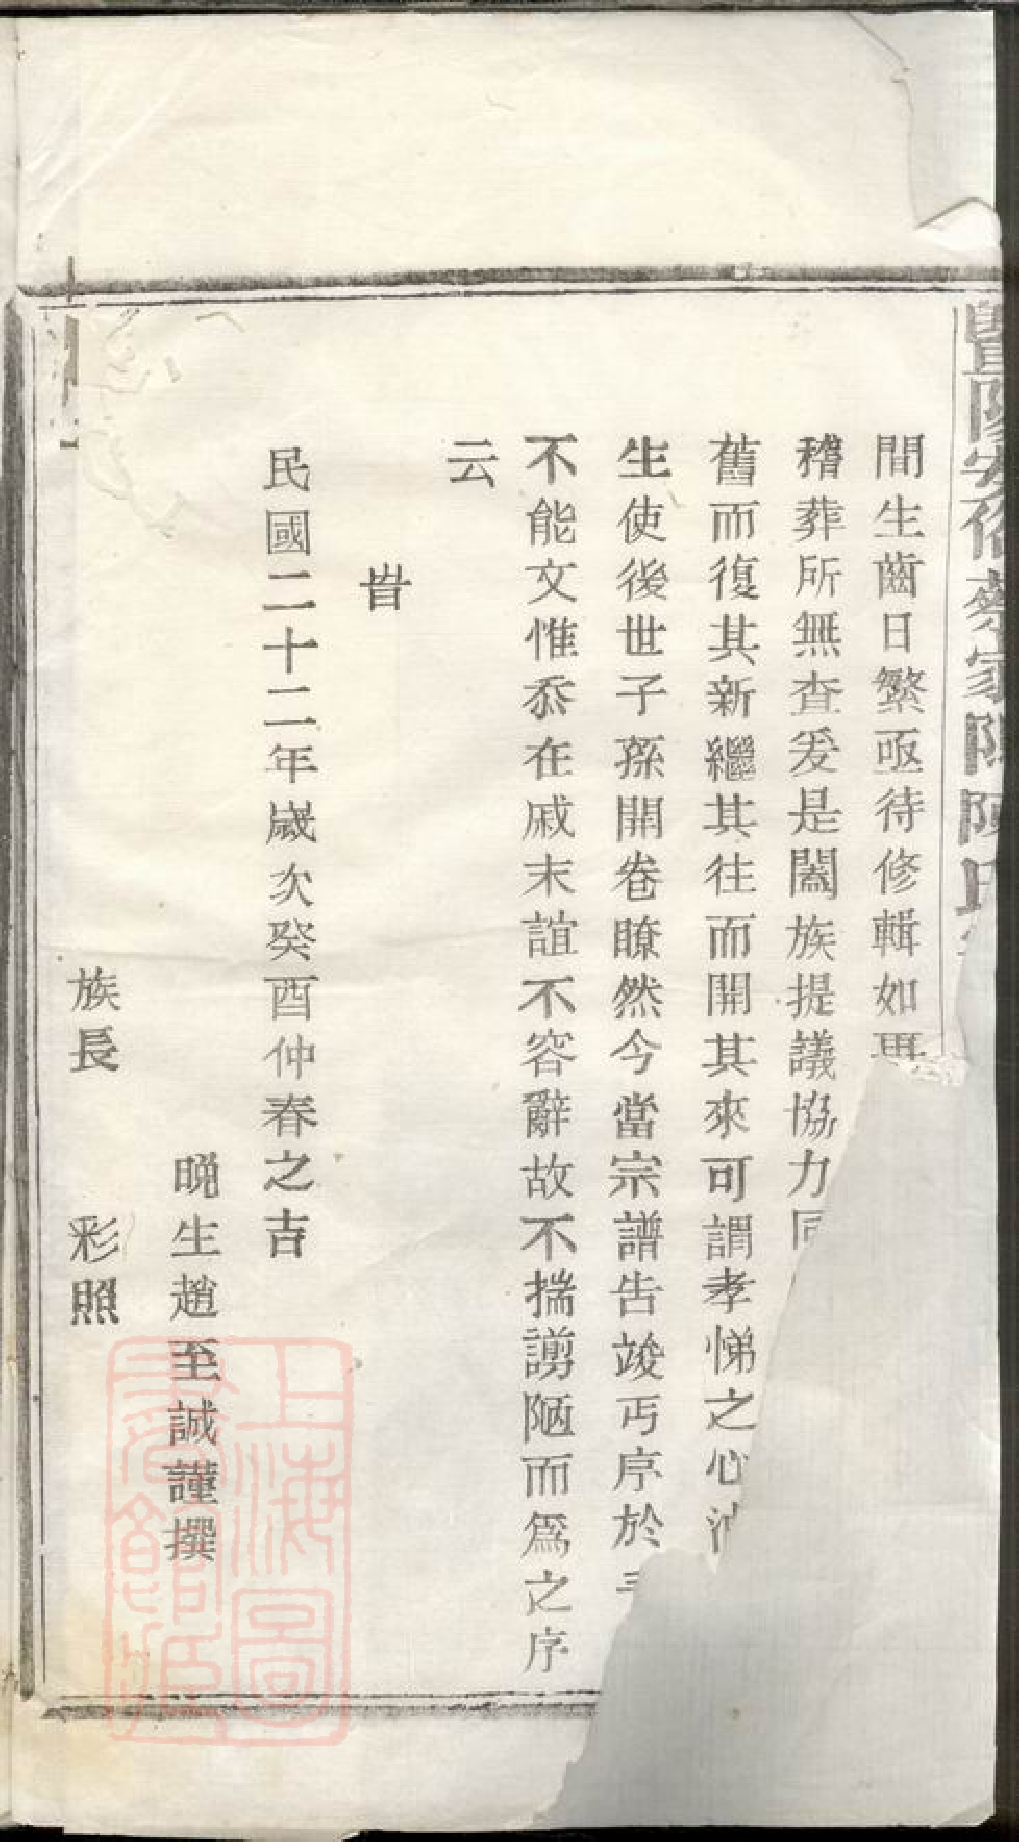 間生齒日繁亟待修輯如再
稽葬所無查爰是闔族提議協力同
舊而復其新繼其往而開其來可謂孝悌之心
生使後世子孫開卷瞭然今當宗譜告竣丐序於
不能文惟忝在戚末誼不容辭故不揣譾陋而爲之序
云
旹
民國二十二年歲次癸酉仲春之吉
晚生趙至誠謹撰
族長 彩照
上海圖
書館藏